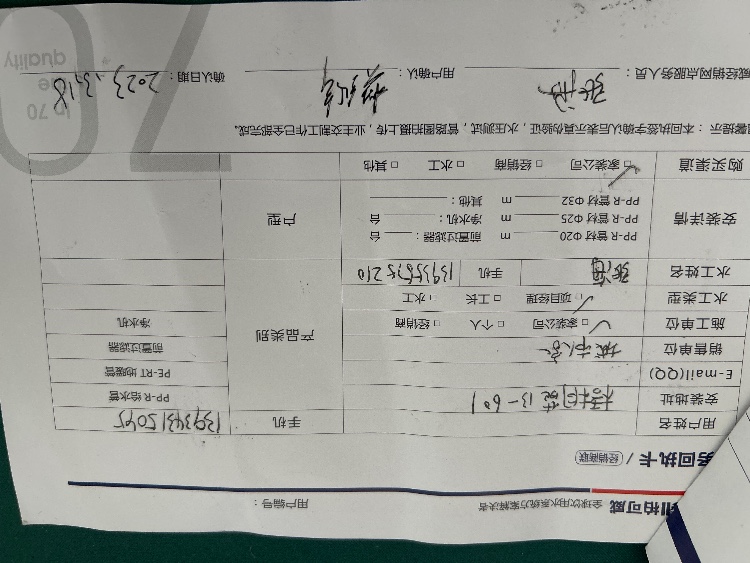 川柏可威 全球饮用水系统方案解决者 用户编号：
务回执卡 / 经销商联
用户姓名 手机 13934315045
安装地址 13-601 PP-R 给水管
E-mail(QQ) PE-RT 地暖管
销售单位 城市人家 产品类别 前置过滤器
施工单位 ✓家装公司 □ 个人 □ 经销商 净水机
水工类型 ✓项目经理 □ 工长 □ 水工
水工姓名 张海 手机 13935635210
安装详情 PP-R 管材 Φ20 m 前置过滤器： 台 户型
PP-R 管材 Φ25 m 净水机： 台
PP-R 管材 Φ32 m 其他：
购买渠道 ✓家装公司 □ 经销商 □ 水工 □ 其他
提示：本回执签字确认后表示真伪验证，水压测试，管路图拍摄上传，业主交割工作已全部完成。
威经销网点服务人员： 张海 用户确认： 确认日期： 2023.3.18
in 70
de
quality
70